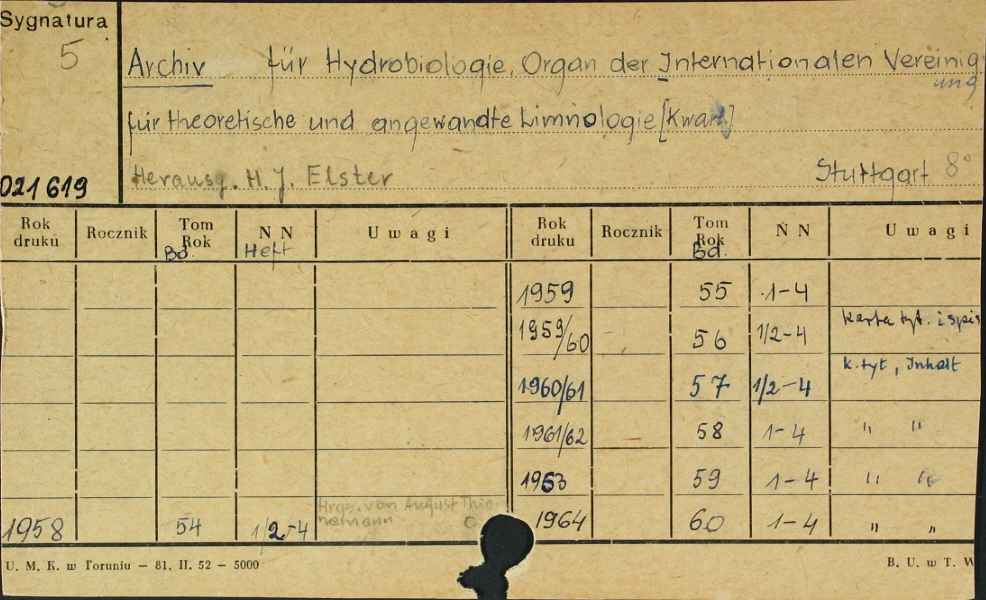 Sygnatura
5
Archiv für Hydrobiologie. Organ der Internationalen Vereinig
ung
für theoretische und angewandte Limnologie [Kwart.]
021619
Herausg. H. J. Elster Stuttgart 8°
Rok druku Rocznik Tom Rok Bd. N N Heft Uwagi Rok druku Rocznik Tom Rok Bd. N N Uwagi
1959 55 1-4
1959/60 56 1/2-4 karta tyt. i spis
1960/61 57 1/2-4 k. tyt, Inhalt
1961/62 58 1-4 " "
1963 59 1-4 " "
Hrgs. von August Thie-
nemann
1958 54 1/2-4 1964 60 1-4 " "
U. M. K. w Toruniu — 81. II. 52 — 5000 B. U. w T. W